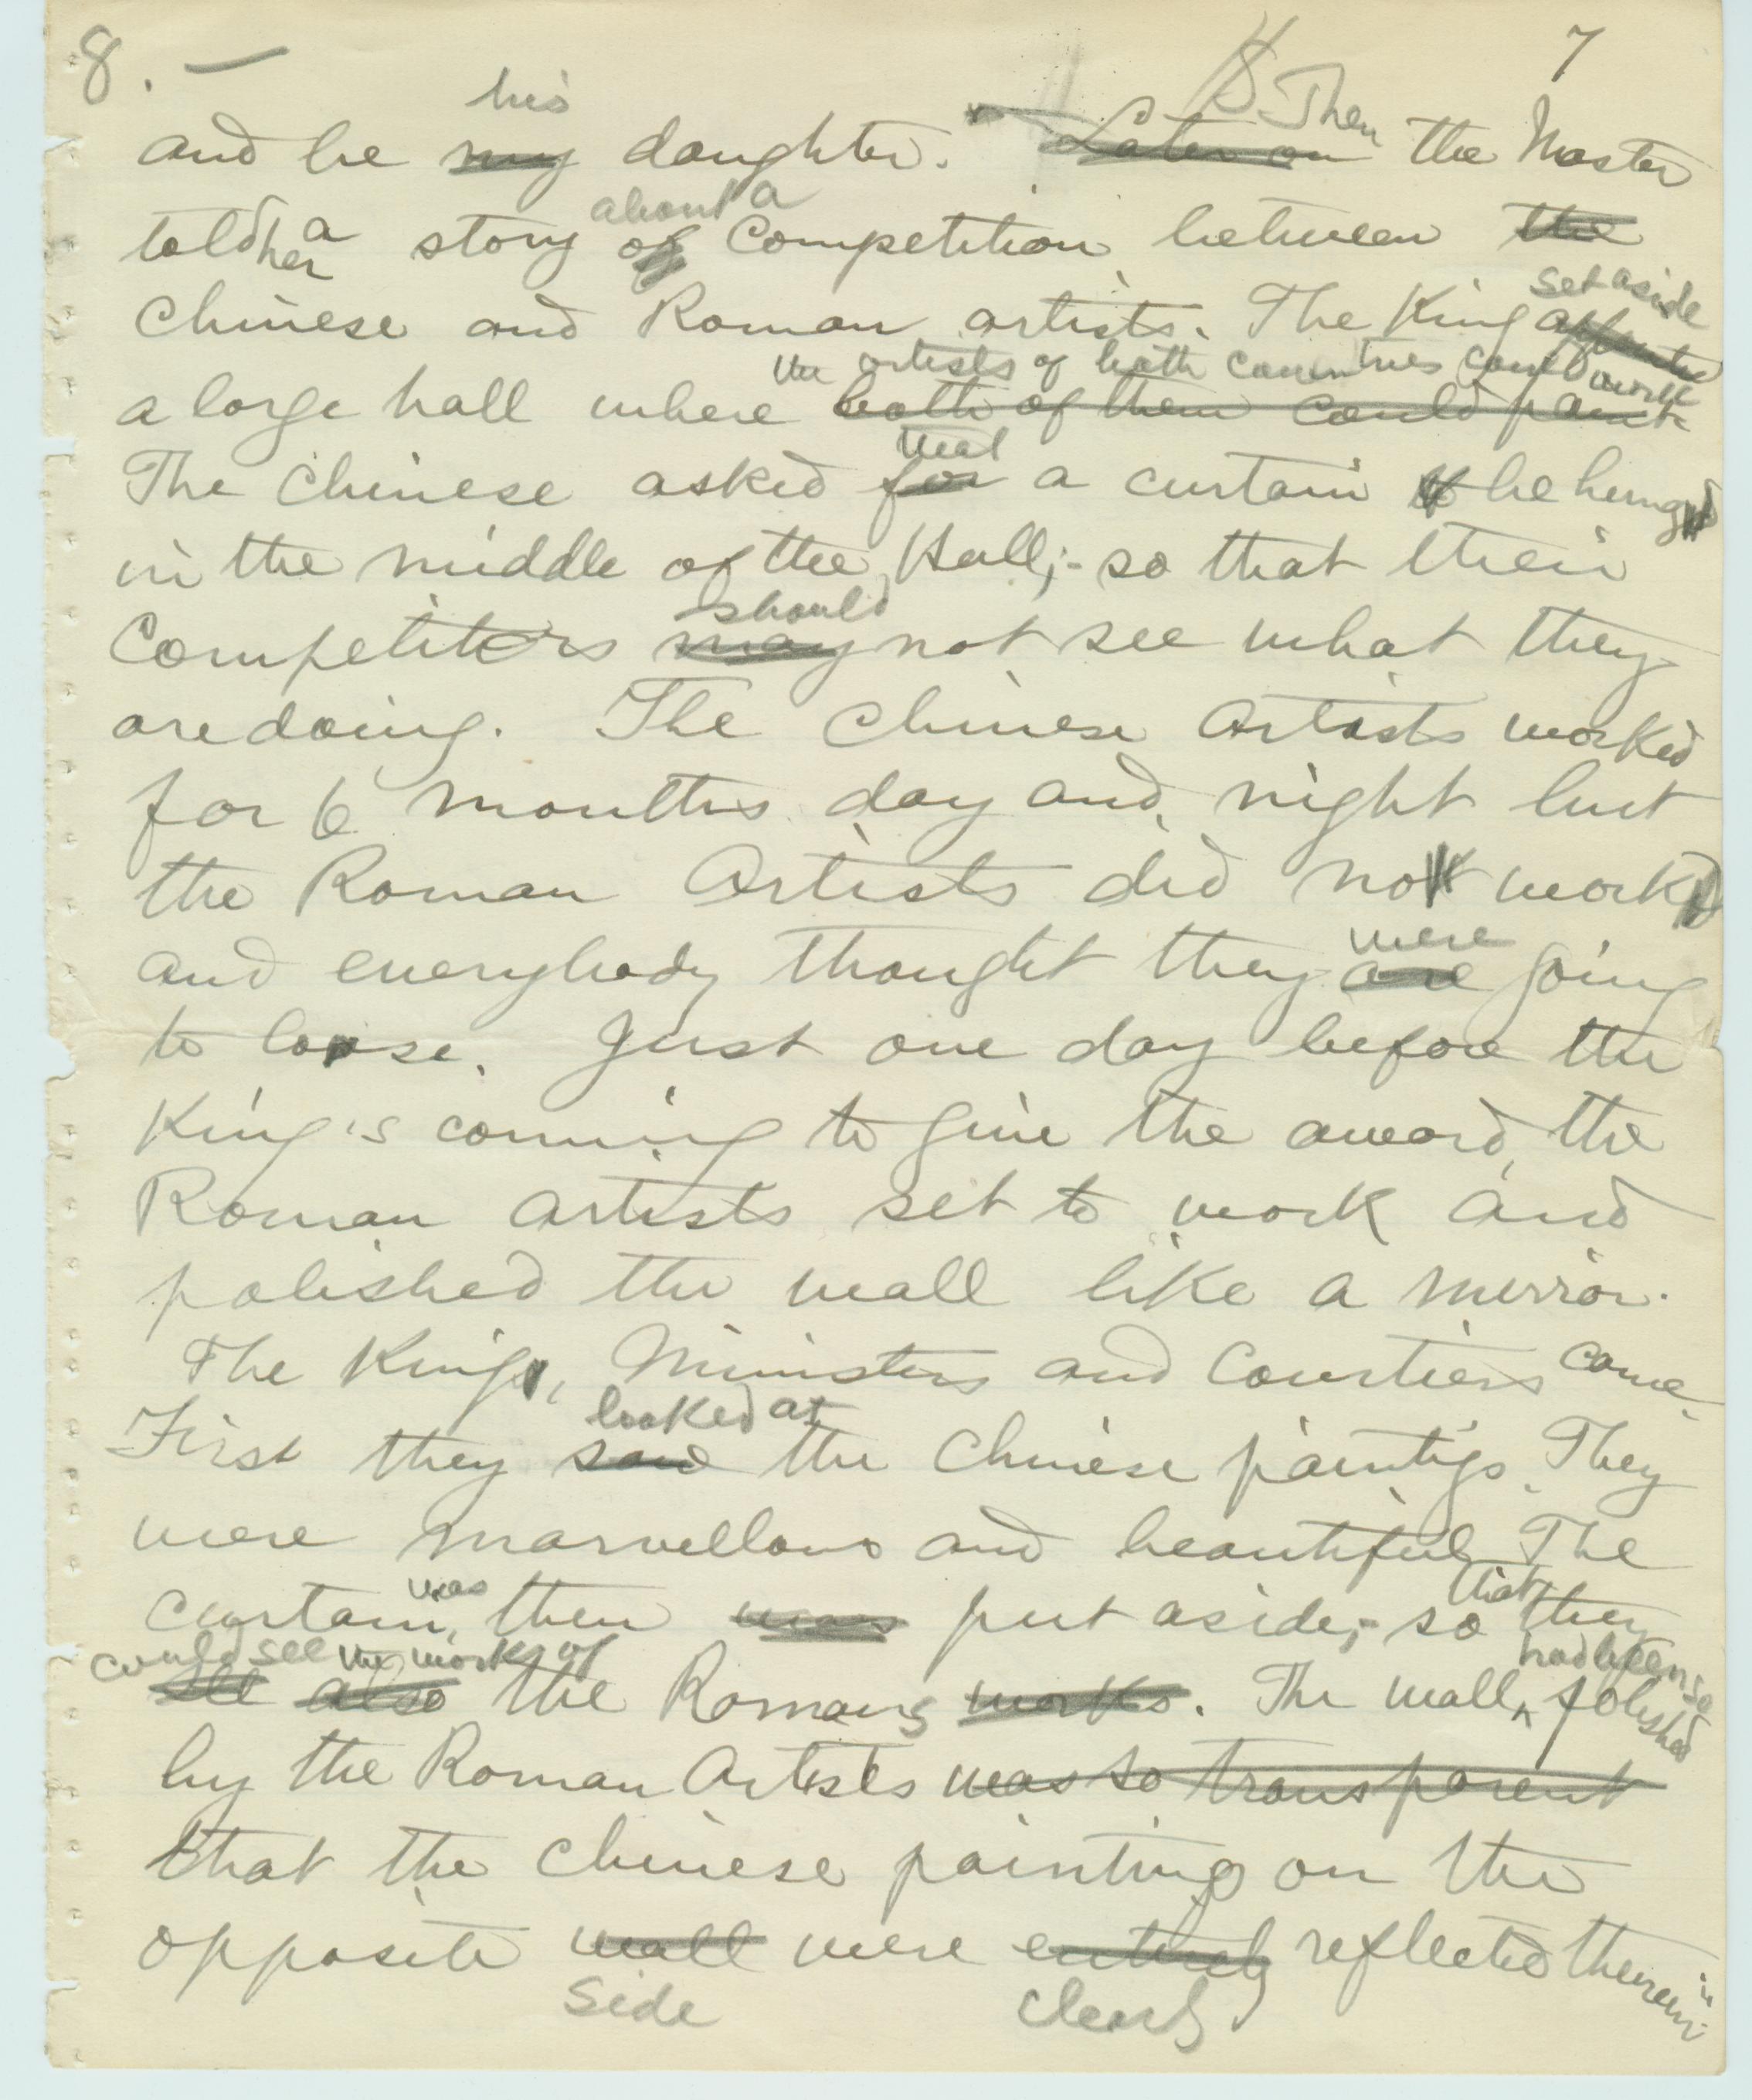 8. — 7
his ¶ Then
and be my daughter. Later on the Master
about a
told her a story of Competition between the
set aside
Chinese and Roman artists. The King
the artists of both countries could work
a large hall where both of them could paint
that
The Chinese asked for a curtain to be hung
in the middle of the Hall;- so that their
should
Competitors may not see what they
are doing. The Chinese Artists worked
for 6 months day and night but
the Roman Artists did not work
were
and everybody thought they are going
to loose. Just one day before the
King is coming to give the award, the
Roman artists set to work and
polished the wall like a mirror.
The King, Ministers and Courtiers came.
looked at
First they saw the Chinese paintigs. They
were marvellous and beautiful. The
was that
Curtain, then was put aside;- so they
could see the work of had been so
see also the Romans works. The wall, polished
by the Roman Artists was so transparent
that the Chinese painting on the
opposite wall were entirely reflected therein
side clearly